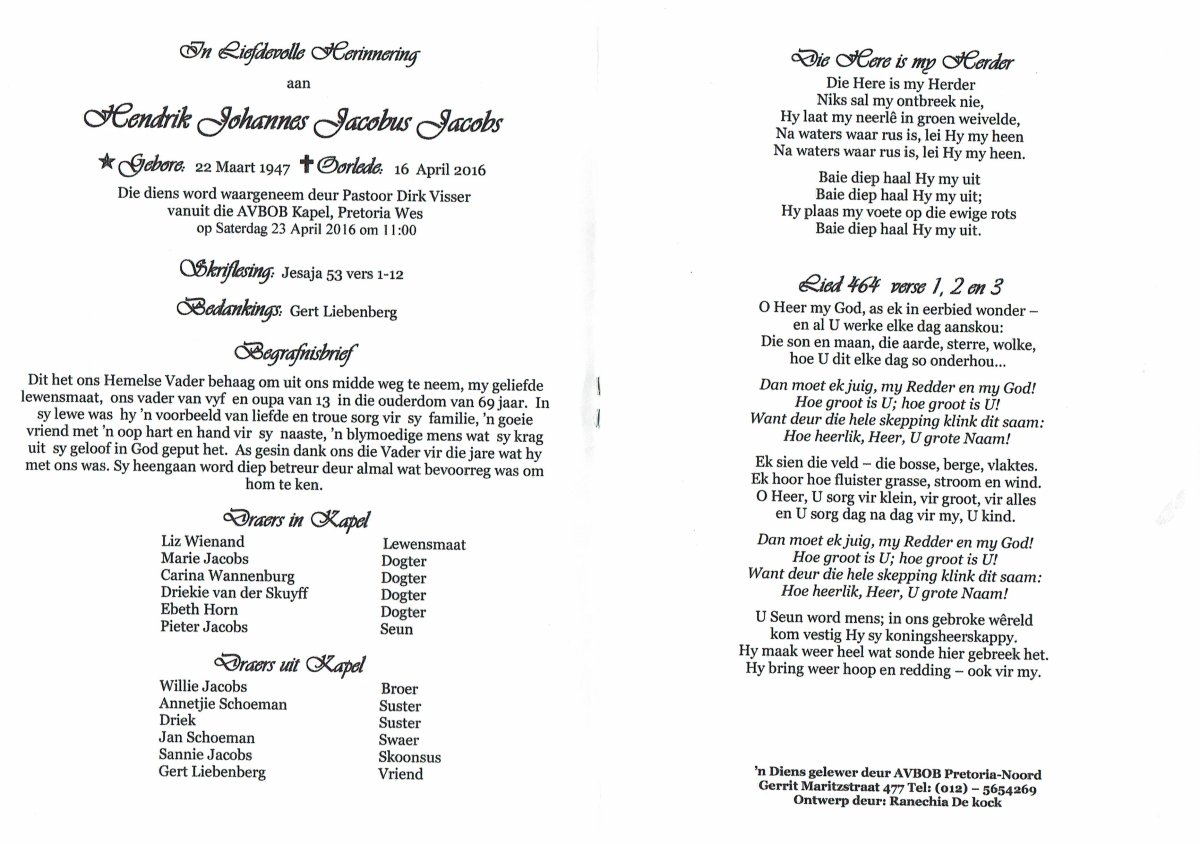 In Liefdevolle Herinnering
aan
Hendrik Johannes Jacobus Jacobs
Gebore: 22 Maart 1947 Oorlede: 16 April 2016
Die diens word waargeneem deur Pastoor Dirk Visser
vanuit die AVBOB Kapel, Pretoria Wes
op Saterdag 23 April 2016 om 11:00
Skriflesing: Jesaja 53 vers 1-12
Bedankings: Gert Liebenberg
Begrafnisbrief
Dit het ons Hemelse Vader behaag om uit ons midde weg te neem, my geliefde
lewensmaat, ons vader van vyf en oupa van 13 in die ouderdom van 69 jaar. In
sy lewe was hy 'n voorbeeld van liefde en troue sorg vir sy familie, 'n goeie
vriend met 'n oop hart en hand vir sy naaste, 'n blymoedige mens wat sy krag
uit sy geloof in God geput het. As gesin dank ons die Vader vir die jare wat hy
met ons was. Sy heengaan word diep betreur deur almal wat bevoorreg was om
hom te ken.
Draers in Kapel
Liz Wienand Lewensmaat
Marie Jacobs Dogter
Carina Wannenburg Dogter
Driekie van der Skuyff Dogter
Ebeth Horn Dogter
Pieter Jacobs Seun
Draers uit Kapel
Willie Jacobs Broer
Annetjie Schoeman Suster
Driek Suster
Jan Schoeman Swaer
Sannie Jacobs Skoonsus
Gert Liebenberg Vriend
Die Here is my Herder
Die Here is my Herder
Niks sal my ontbreek nie,
Hy laat my neerlê in groen weivelde,
Na waters waar rus is, lei Hy my heen
Na waters waar rus is, lei Hy my heen.
Baie diep haal Hy my uit
Baie diep haal Hy my uit;
Hy plaas my voete op die ewige rots
Baie diep haal Hy my uit.
Lied 464 verse 1, 2 en 3
O Heer my God, as ek in eerbied wonder –
en al U werke elke dag aanskou:
Die son en maan, die aarde, sterre, wolke,
hoe U dit elke dag so onderhou...
Dan moet ek juig, my Redder en my God!
Hoe groot is U; hoe groot is U!
Want deur die hele skepping klink dit saam:
Hoe heerlik, Heer, U grote Naam!
Ek sien die veld – die bosse, berge, vlaktes.
Ek hoor hoe fluister grasse, stroom en wind.
O Heer, U sorg vir klein, vir groot, vir alles
en U sorg dag na dag vir my, U kind.
Dan moet ek juig, my Redder en my God!
Hoe groot is U; hoe groot is U!
Want deur die hele skepping klink dit saam:
Hoe heerlik, Heer, U grote Naam!
U Seun word mens; in ons gebroke wêreld
kom vestig Hy sy koningsheerskappy.
Hy maak weer heel wat sonde hier gebreek het.
Hy bring weer hoop en redding – ook vir my.
'n Diens gelewer deur AVBOB Pretoria-Noord
Gerrit Maritzstraat 477 Tel: (012) – 5654269
Ontwerp deur: Ranechia De kock